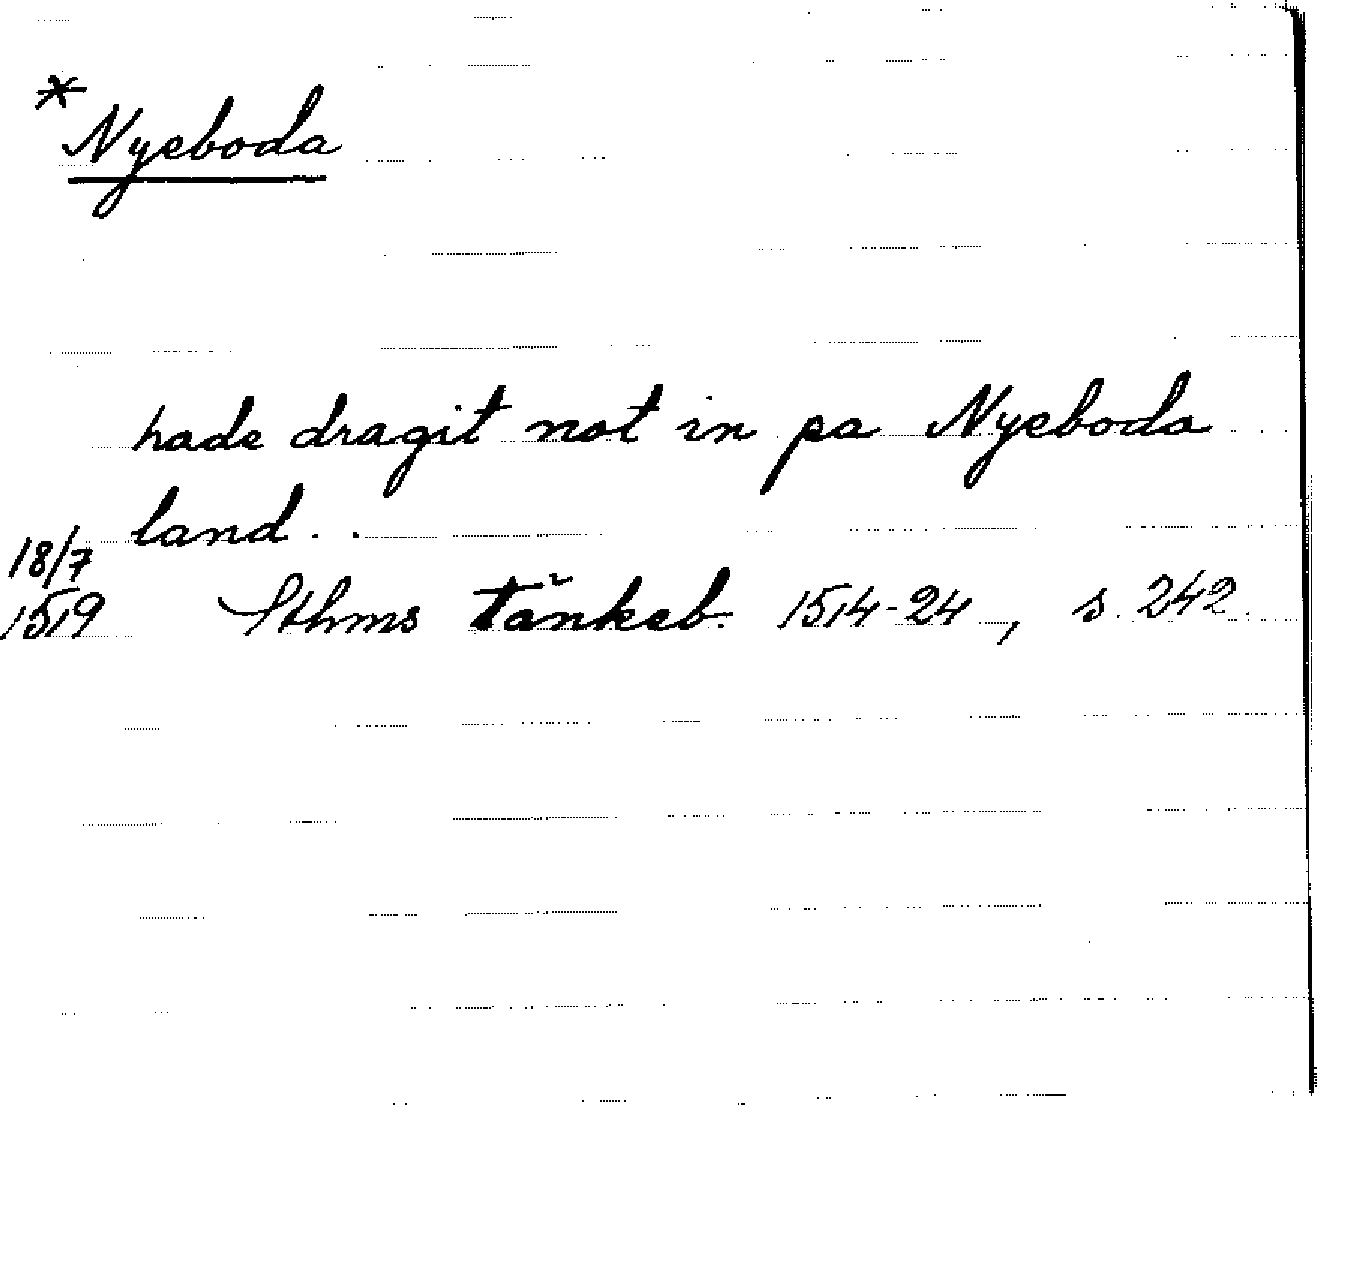 *
Nyeboda
hade dragit not in pa Nyeboda
land . .
18/7
1519 Sthms tänkeb. 1514-24, s. 242.